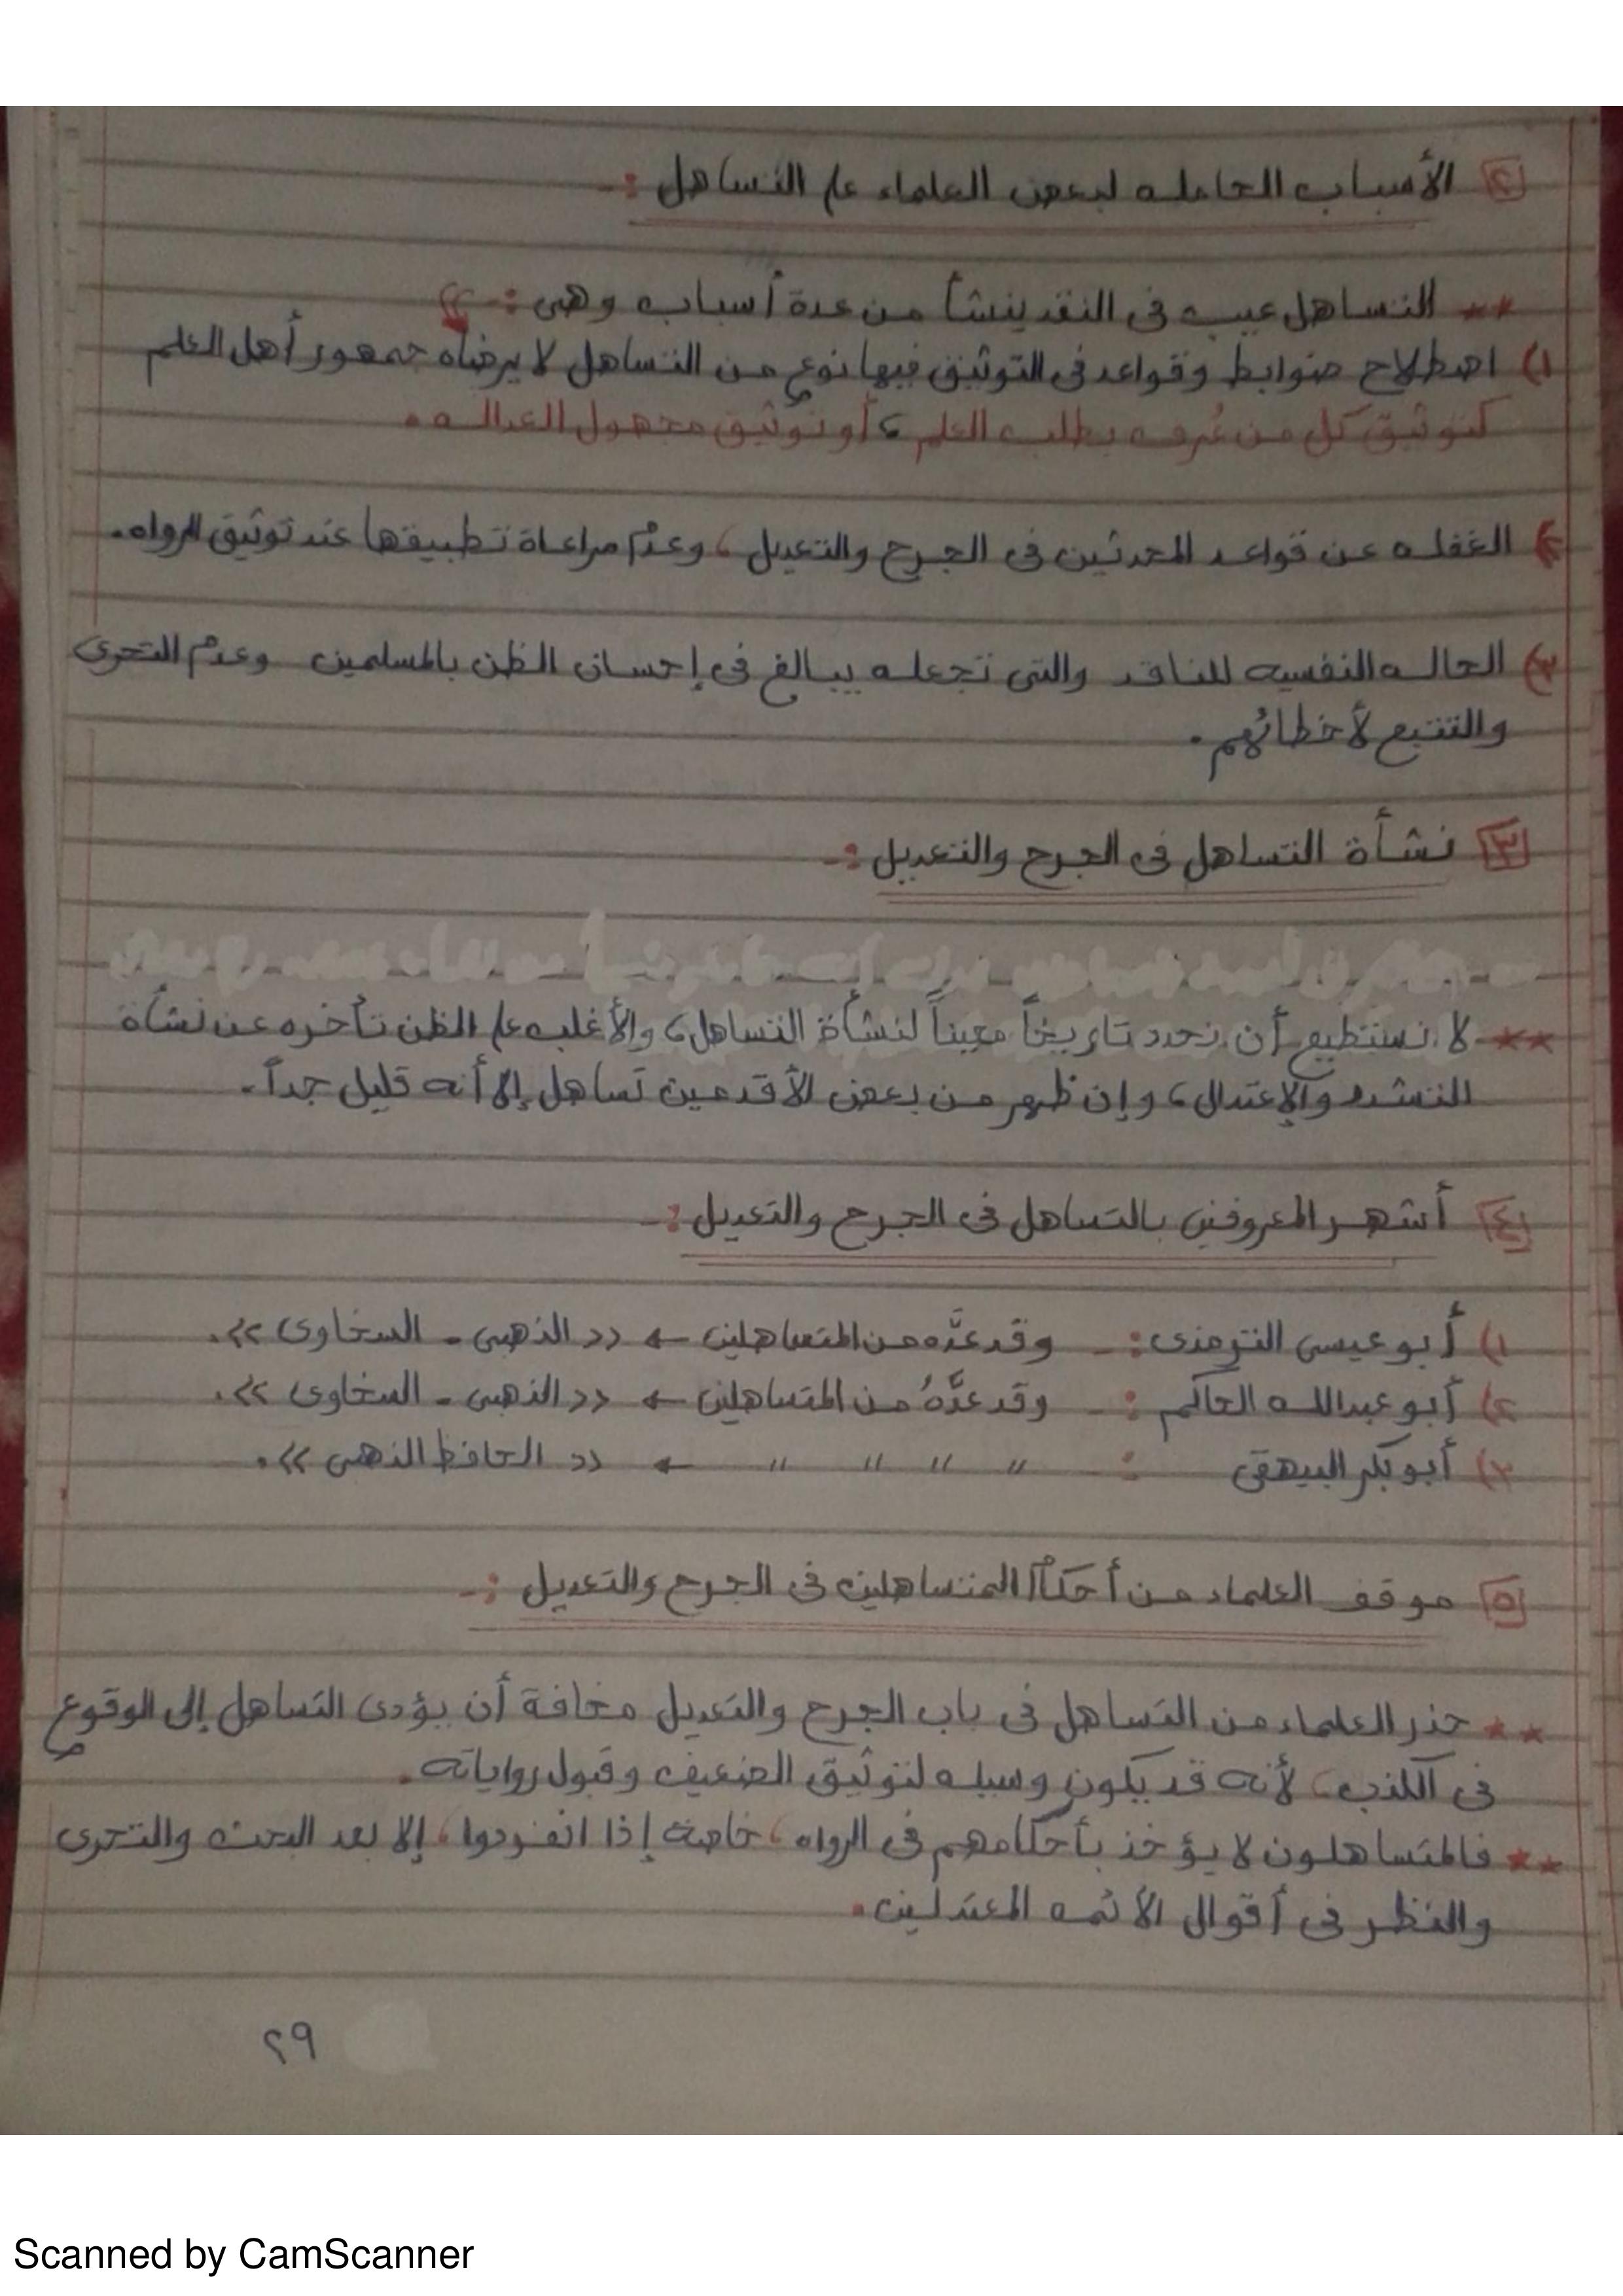 ٢ الأسباب الحامله لبعض العلماء على التساهل :-
** التساهل عيب فى النقد ينشأ من عدة أسباب وهى :-
١) اصطلاح ضوابط وقواعد فى التوثيق فيها نوع من التساهل لا يرضاه جمهور أهل العلم
كتوثيق كل من عُرف بطلب العلم ، أو توثيق مجهول العداله .
٢) الغفله عن قواعد المحدثين فى الجرح والتعديل ، وعدم مراعاة تطبيقها عند توثيق الرواه .
٣) الحاله النفسيه للناقد والتى تجعله يبالغ فى إحسان الظن بالمسلمين وعدم التحرى
والتتبع لأخطائهم .
٣ نشأة التساهل فى الجرح والتعديل :-
** لا نستطيع أن نحدد تاريخاً معيناً لنشأة التساهل ، والأغلب على الظن تأخره عن نشأة
التشدد والإعتدال ، وإن ظهر من بعض الأقدمين تساهل إلا أنه قليل جداً .
٤ أشهر المعروفين بالتساهل فى الجرح والتعديل :-
١) أبو عيسى الترمذى :- وقد عدَّه من المتساهلين ← << الذهبى - السخاوى >> .
٢) أبو عبدالله الحاكم :- وقد عدَّهُ من المتساهلين ← << الذهبى - السخاوى >> .
٣) أبو بكر البيهقى :- " " " " ← << الحافظ الذهبى >> .
٥ موقف العلماء من أحكام المتساهلين فى الجرح والتعديل :-
** حذر العلماء من التساهل فى باب الجرح والتعديل مخافة أن يؤدى التساهل إلى الوقوع
فى الكذب ، لأنه قد يكون وسيله لتوثيق الضعيف وقبول رواياته .
** فالمتساهلون لا يؤخذ بأحكامهم فى الرواه ، خاصة إذا انفردوا ، إلا بعد البحث والتحرى
والنظر فى أقوال الأئمه المعتدلين .
٢٩
Scanned by CamScanner